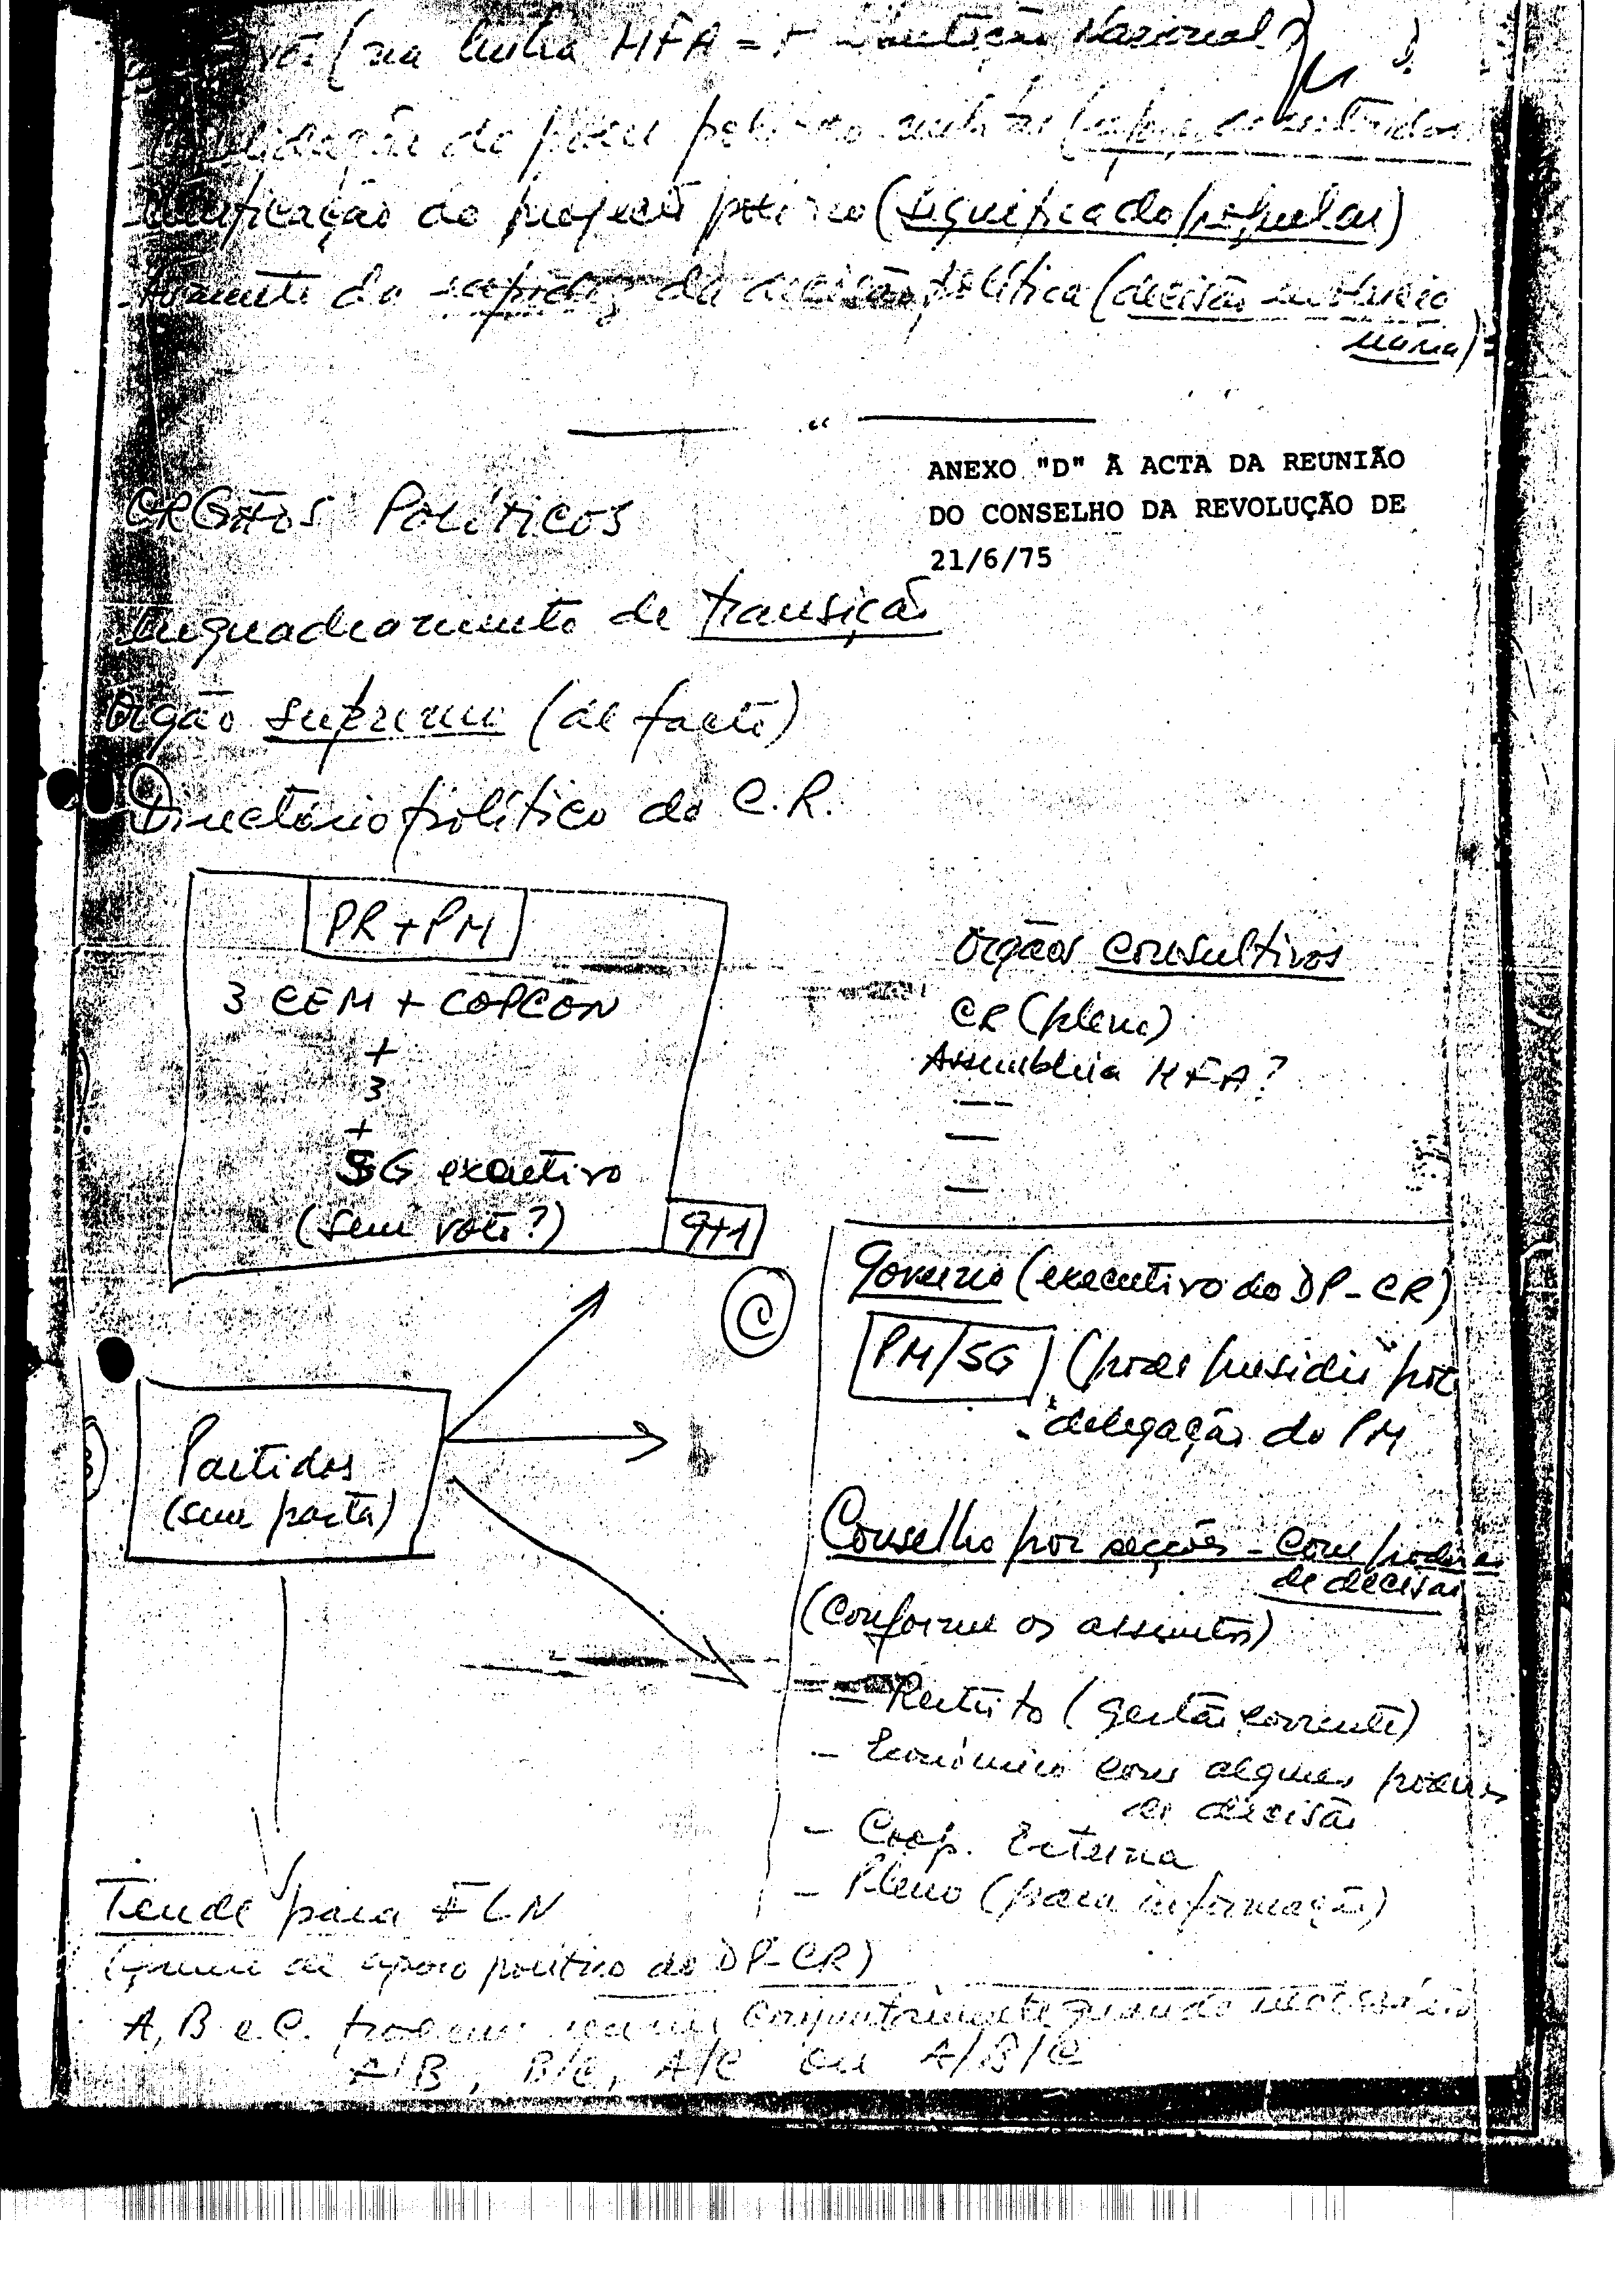 (na linha MFA = Nacional
do poder
do projecto político (significado popular)
Aumento da rapidez da decisão política (decisão
ANEXO "D" À ACTA DA REUNIÃO
DO CONSELHO DA REVOLUÇÃO DE
21/6/75
ORGÃOS POLÍTICOS
Enquadramento de transição
Orgão supremo (de facto)
Directório político do C.R.
PR + PM
3 CEM + COPCON
+
3
+
SG executivo
(sem voto?)
9+1
Orgãos consultivos
CR (pleno)
Assembleia MFA?
Governo (executivo do DP-CR)
PM/SG (pode presidir por
delegação do PM
C
Partidos
(sem pasta)
Conselho por secções - com poderes
de decisão
(Conforme os assuntos)
- Restrito (gestão corrente)
- Económico com alguns poderes
de decisão
- Coop. Externa
- Pleno (para informação)
Tende para FLN
de apoio político do DP-CR)
A, B e C. podem reunir conjuntamente quando necessário
A/B, B/C, A/C ou A/B/C